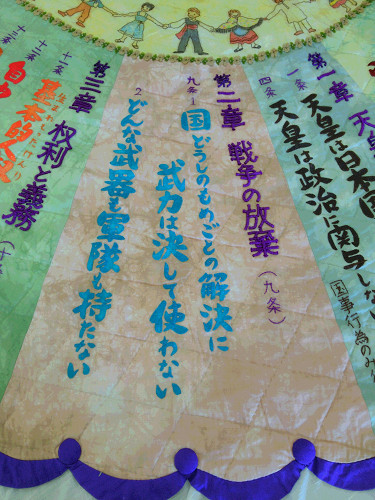 第一章 天皇
一条 天皇は日本国
四条 天皇は政治に関与しない
国事行為のみ
第二章 戦争の放棄
（九条）
九条 1 国どうしのもめごとの解決に
武力は決して使わない
2 どんな武器も軍隊も持たない
第三章 権利と義務
十条
十一条
基本的人権
自由